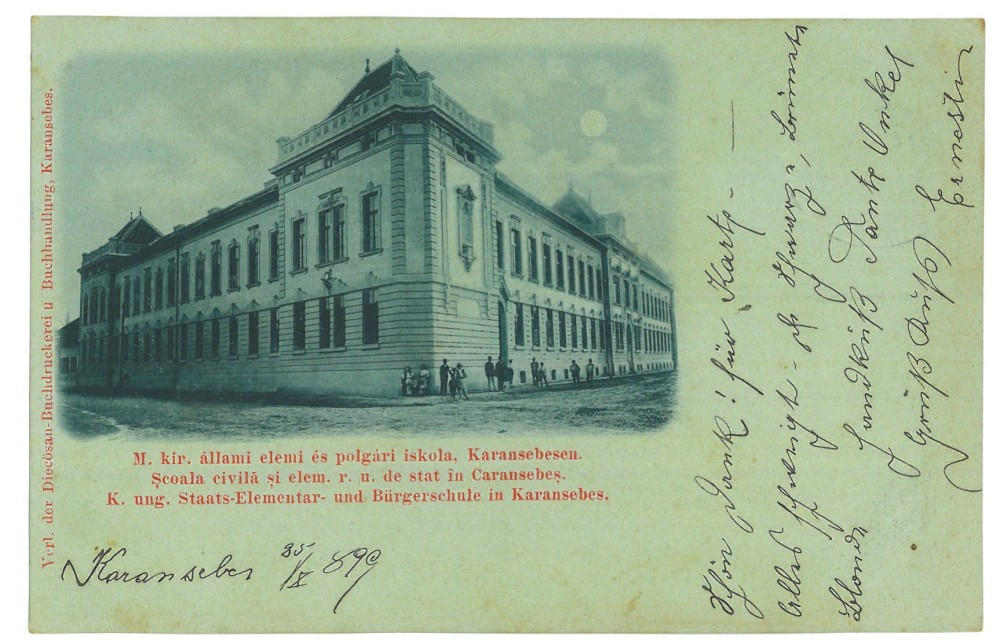 Verl. der Diecösan-Buchdruckerei u Buchhandlung, Karansebes.
M. kir. állami elemi és polgári iskola, Karansebesen.
Școala civilă și elem. r. u. de stat în Caransebeș.
K. ung. Staats-Elementar- und Bürgerschule in Karansebes.
Karansebes 25/X 899
Schön Dank! für Karte –
Alles schweigt – ob Schwarze, Brünette
Blonde
Handkuß Tante Onkel
Gruß Kuß
Ernestin